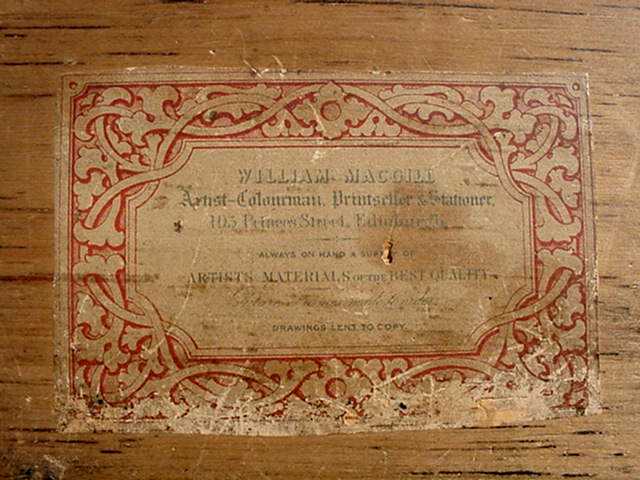 WILLIAM MACGILL
Artist-Colourman, Printseller & Stationer,
105 Princes Street, Edinburgh,
ALWAYS ON HAND A SUPPLY OF
ARTISTS MATERIALS OF THE BEST QUALITY
Pictures Frames made to order
DRAWINGS LENT TO COPY.